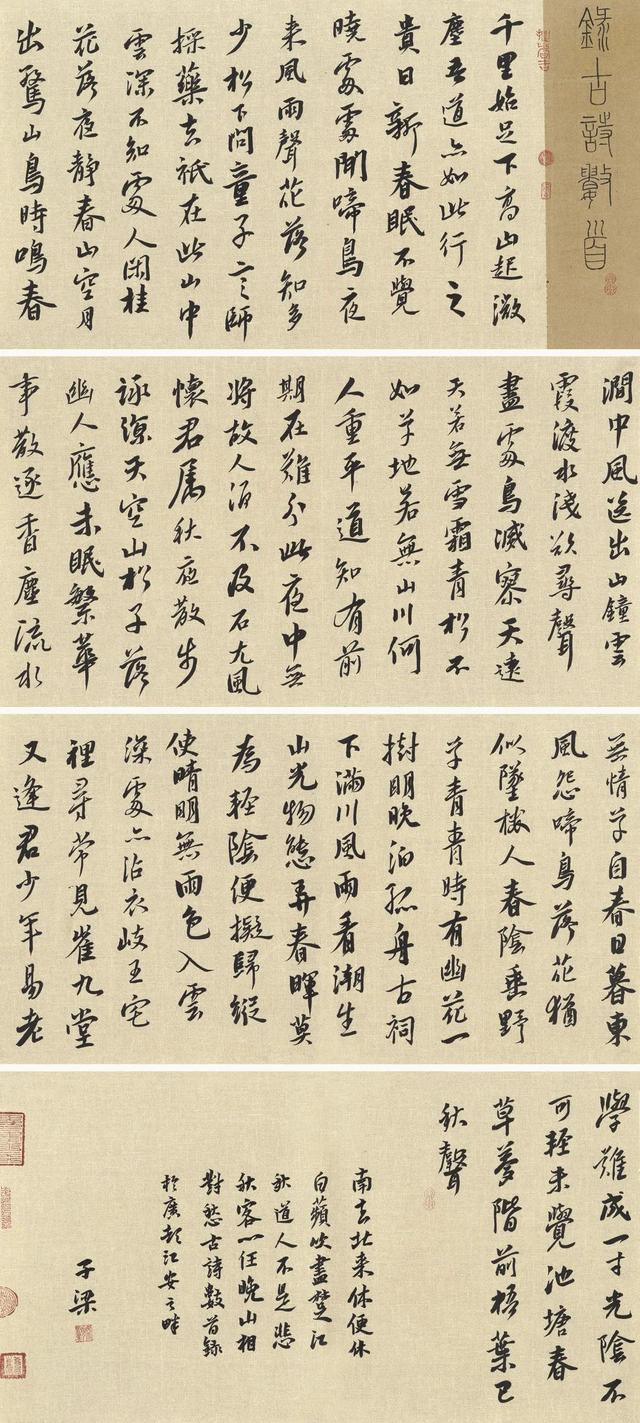 錄古詩數首
千里始足下高山起微
塵吾道亦如此行之
貴日新春眠不覺
曉處處聞啼鳥夜
来風雨聲花落知多
少松下問童子言師
採藥去祇在此山中
雲深不知處人閑桂
花落夜靜春山空月
出驚山鳥時鳴春
澗中風送出山鐘雲
霞渡水淺欲尋聲
盡處鳥滅寥天遠
天若無雪霜青松不
如草地若無山川何
人重平道知有前
期在難分此夜中無
將故人酒不及石尤風
懷君屬秋夜散步
詠涼天空山松子落
幽人應未眠繁華
事散逐香塵流水
無情草自春日暮東
風怨啼鳥落花猶
似墜樓人春陰垂野
草青青時有幽花一
樹明晚泊孤舟古祠
下滿川風雨看潮生
山光物態弄春暉莫
為輕陰便擬歸縱
使晴明無雨色入雲
深處亦沾衣岐王宅
裡尋常見崔九堂
又逢君少年易老
學難成一寸光陰不
可輕未覺池塘春
草夢階前梧葉已
秋聲
南去北来休便休
白蘋吹盡楚江
秋道人不是悲
秋客一任晚山相
對愁古詩數首錄
於江安之畔
子梁